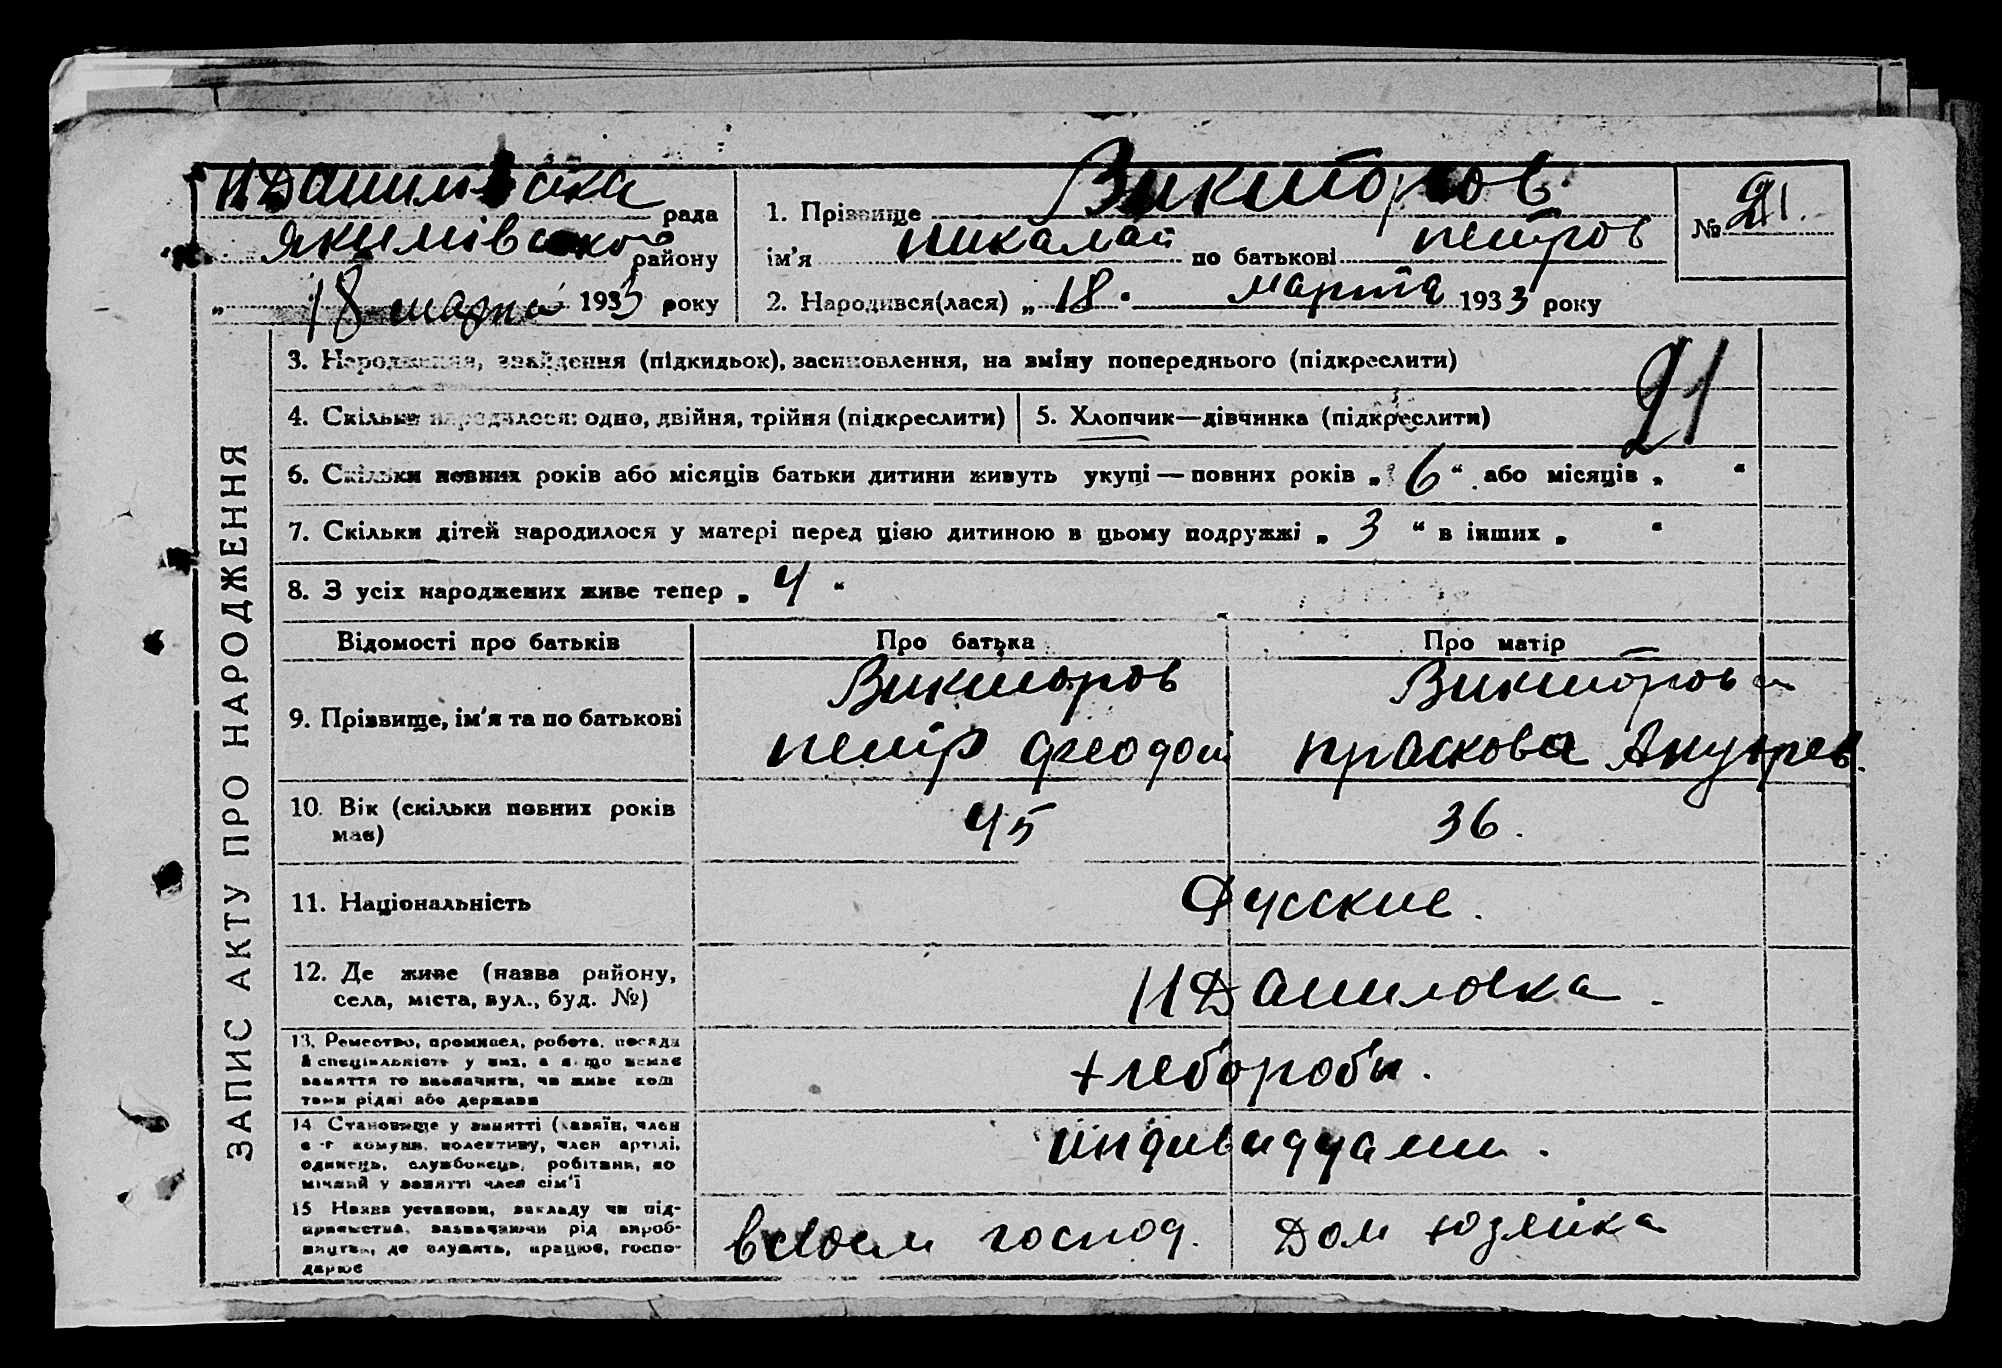 НДанилівська рада
Якимівського району
„ 18 марта 1933 року
1. Прізвище Викторов
ім'я Николай по батькові Петров
2. Народився(лася) „ 18. марта 1933 року
№ 21.
3. Народження, знайдення (підкидьок), засиновлення, на зміну попереднього (підкреслити)
21
4. Скільки народилося: одно, двійня, трійня (підкреслити)
5. Хлопчик—дівчинка (підкреслити)
6. Скільки повних років або місяців батьки дитини живуть укупі — повних років „ 6 “ або місяців „ “
7. Скільки дітей народилося у матері перед цією дитиною в цьому подружжі „ 3 “ в інших „ “
8. З усіх народжених живе тепер „ 4 “
Відомості про батьків
Про батька
Про матір
9. Прізвище, ім'я та по батькові
Викторов
Петр Феодот
Викторова
Прасковя Андрев.
10. Вік (скільки повних років
має)
45
36.
11. Національність
Русские.
12. Де живе (назва району,
села, міста, вул., буд. №)
НДаниловка.
13. Ремество, промисел, робота, посада
й спеціяльність у них, а якщо немає
заняття то визначити, чи живе кош
тами рідні або держави
хлеборобы.
14 Становище у занятті (хазяїн, член
с-г комуни, колективу, член артілі,
одинець, службовець, робітник, по
мічний у занятті член сім'ї
индивидуали.
15 Назва установи, закладу чи під-
приємства, зазначаючи рід вироб-
ництва, де служить, працює, госпо-
дарює
в своем господ.
Дом хозяйка
ЗАПИС АКТУ ПРО НАРОДЖЕННЯ